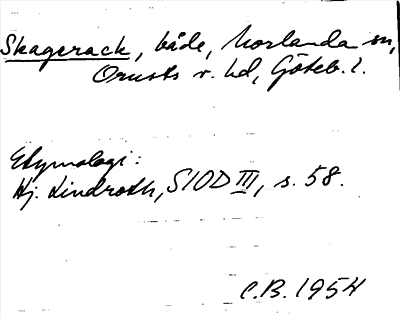 Skagerack, både, Morlanda sn,
Orusts v. hd, Göteb. l.
Etymologi:
Hj. Lindroth, SIOD III, s. 58.
C.B. 1954